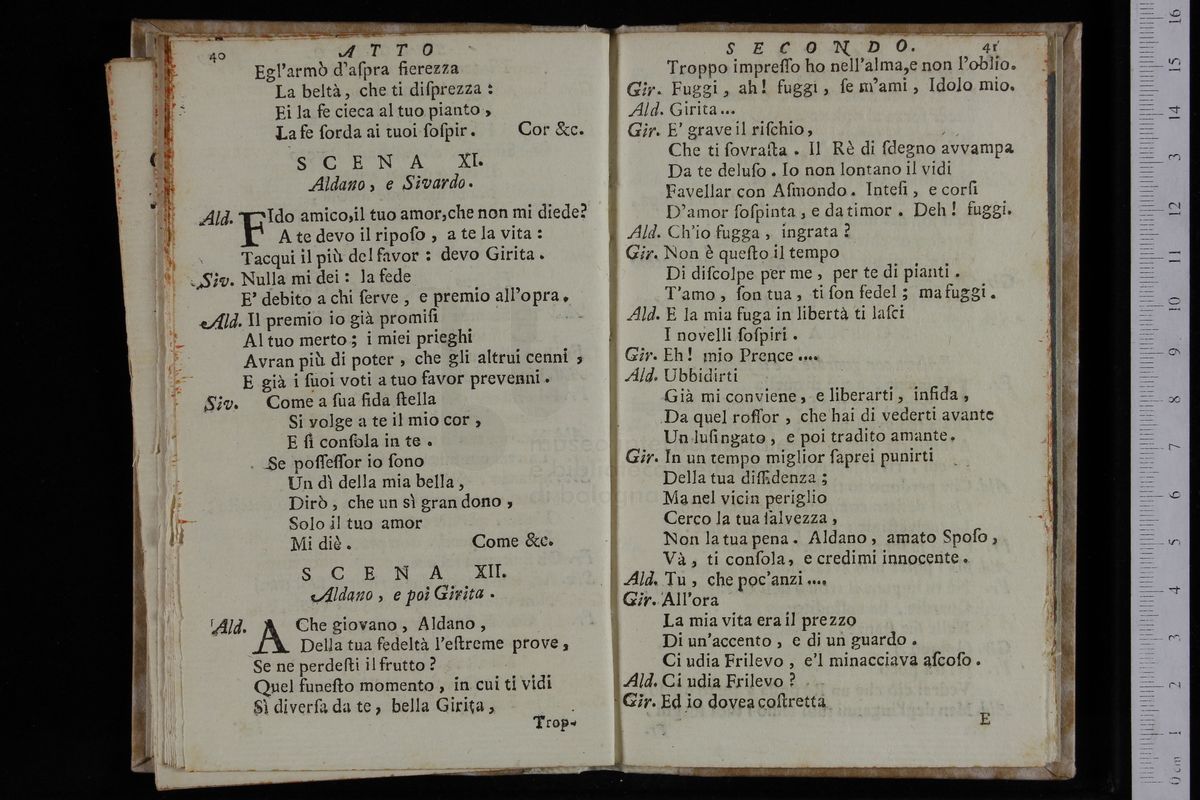 40 ATTO
Egl'armò d'aſpra fierezza
La beltà, che ti diſprezza :
Ei la fe cieca al tuo pianto ,
La fe ſorda ai tuoi ſoſpir . Cor &c.
SCENA XI.
Aldano , e Sivardo .
Ald. FIdo amico,il tuo amor,che non mi diede?
A te devo il ripoſo , a te la vita :
Tacqui il più del favor : devo Girita .
Siv. Nulla mi dei : la fede
E' debito a chi ſerve , e premio all'opra .
Ald. Il premio io già promiſi
Al tuo merto ; i miei prieghi
Avran più di poter , che gli altrui cenni ,
E già i ſuoi voti a tuo favor prevenni .
Siv. Come a ſua fida ſtella
Si volge a te il mio cor ,
E ſi conſola in te .
Se poſſeſſor io ſono
Un dì della mia bella ,
Dirò , che un sì gran dono ,
Solo il tuo amor
Mi diè . Come &c.
SCENA XII.
Aldano , e poi Girita .
Ald. A Che giovano , Aldano ,
Della tua fedeltà l'eſtreme prove ,
Se ne perdeſti il frutto ?
Quel funeſto momento , in cui ti vidi
Sì diverſa da te , bella Girita ,
Trop-
SECONDO. 41
Troppo impreſſo ho nell'alma,e non l'oblio.
Gir. Fuggi , ah! fuggi , ſe m'ami , Idolo mio.
Ald. Girita...
Gir. E' grave il riſchio ,
Che ti ſovraſta . Il Rè di ſdegno avvampa
Da te deluſo . Io non lontano il vidi
Favellar con Aſmondo . Inteſi , e corſi
D'amor ſoſpinta , e da timor . Deh ! fuggi.
Ald. Ch'io fugga , ingrata ?
Gir. Non è queſto il tempo
Di diſcolpe per me , per te di pianti .
T'amo , ſon tua , ti ſon fedel ; ma fuggi .
Ald. E la mia fuga in libertà ti laſci
I novelli ſoſpiri .
Gir. Eh ! mio Prence ....
Ald. Ubbidirti
Già mi conviene , e liberarti , infida ,
Da quel roſſor , che hai di vederti avante
Un luſingato , e poi tradito amante .
Gir. In un tempo miglior ſaprei punirti
Della tua diffidenza ;
Ma nel vicin periglio
Cerco la tua ſalvezza ,
Non la tua pena . Aldano , amato Spoſo ,
Và , ti conſola , e credimi innocente .
Ald. Tu , che poc'anzi ....
Gir. All'ora
La mia vita era il prezzo
Di un'accento , e di un guardo .
Ci udia Frilevo , e'l minacciava aſcoſo .
Ald. Ci udia Frilevo ?
Gir. Ed io dovea coſtretta
E